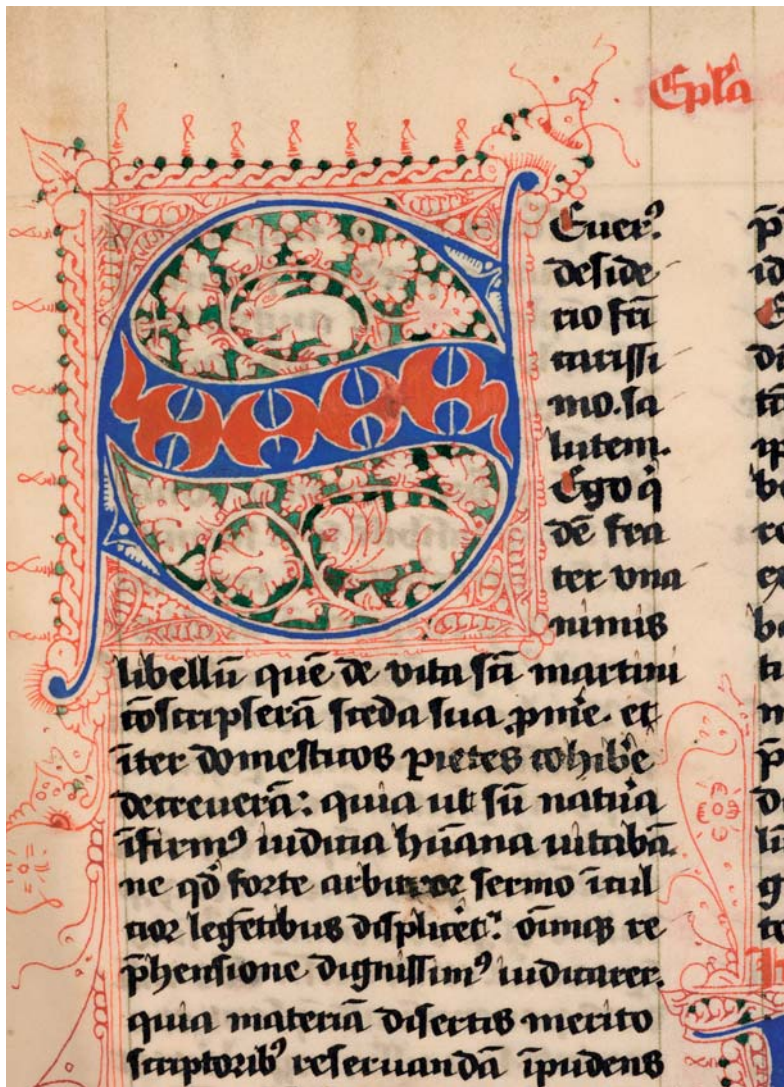 Epl̄a
S
Euer⁹
deside
rio fr̄i
cariſſi
mo. ſa
lutem.
Ego q̄
dē fra
ter vna
nimis
libellū quē de vita ſcī martini
cōſcripſerā ſceda ſua p̄mē. et
īter domeſticos pietes cohibē
decreuerā: quia ut ſū natura
īfirm⁹ iudicia hūana uitabā.
ne qd̄ forte arbitror ſermo īcul
tior legētibus diſplicēt: oīmqꝫ re
p̄henſione digniſſim⁹ iudicarer.
quia materiā diſertis merito
ſcriptorib⁹ reſeruandā īpudens